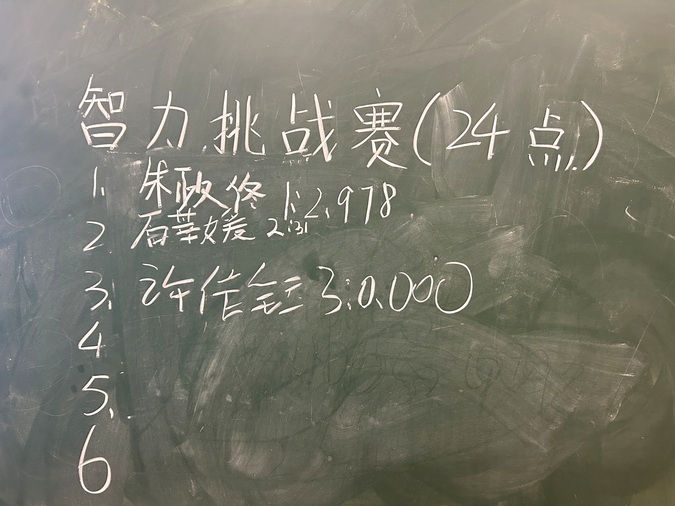 智力挑战赛(24点)
1. 朱政修 1:2.978
2. 石華媛 2:31
3. 许信鈺 3:0.000
4
5.
6